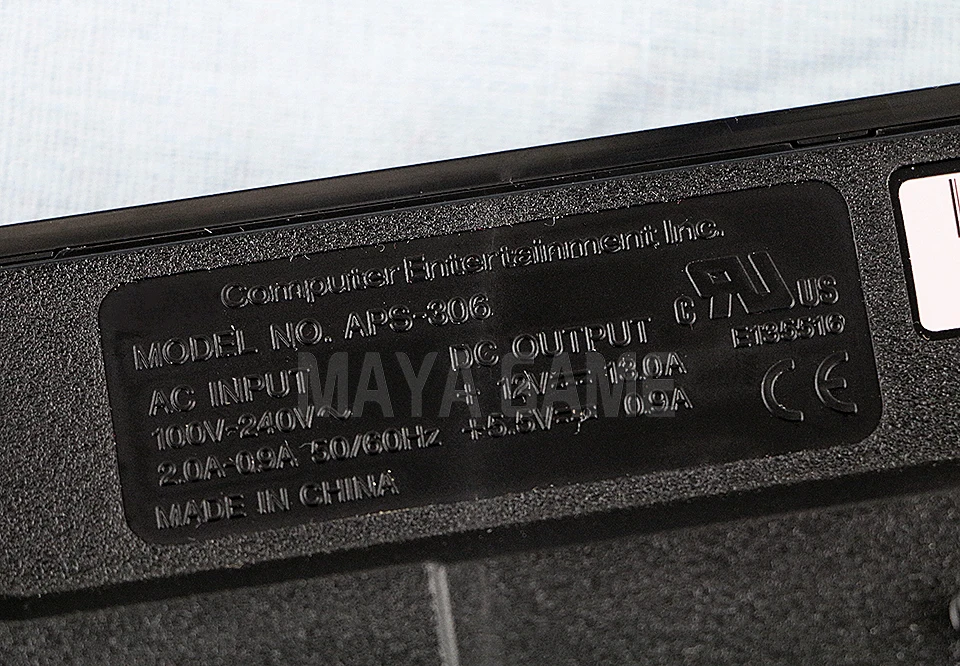 Computer Entertainment Inc.
MODEL NO. APS-306
AC INPUT
100V-240V~
2.0A-0.9A 50/60Hz
DC OUTPUT
+ 12V⎓ 13.0A
+5.5V⎓ 0.9A
MADE IN CHINA
c RU US
E135516
CE
MAYA GAME